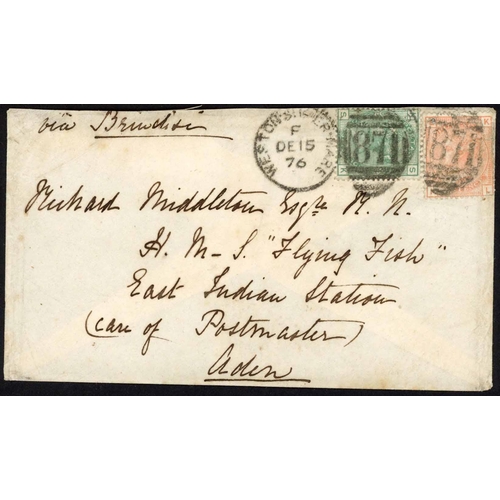 via Brindisi
WESTON-SUPER-MARE
F
DE 15
76
871
871
Richard Middleton Esqre R. N.
H. M. S. "Flying Fish"
East Indian Station
(care of Postmaster)
Aden